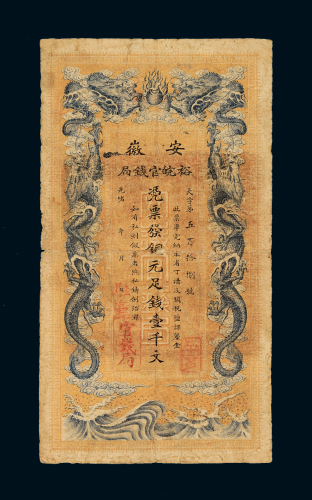 安徽
裕皖官錢局
天字第五百拾捌號
此票準完納本省丁漕及關稅鹽課釐金
憑票發銅元足錢壹千文
如有私刻假票者照私鑄例治罪
光緒 年 月 日